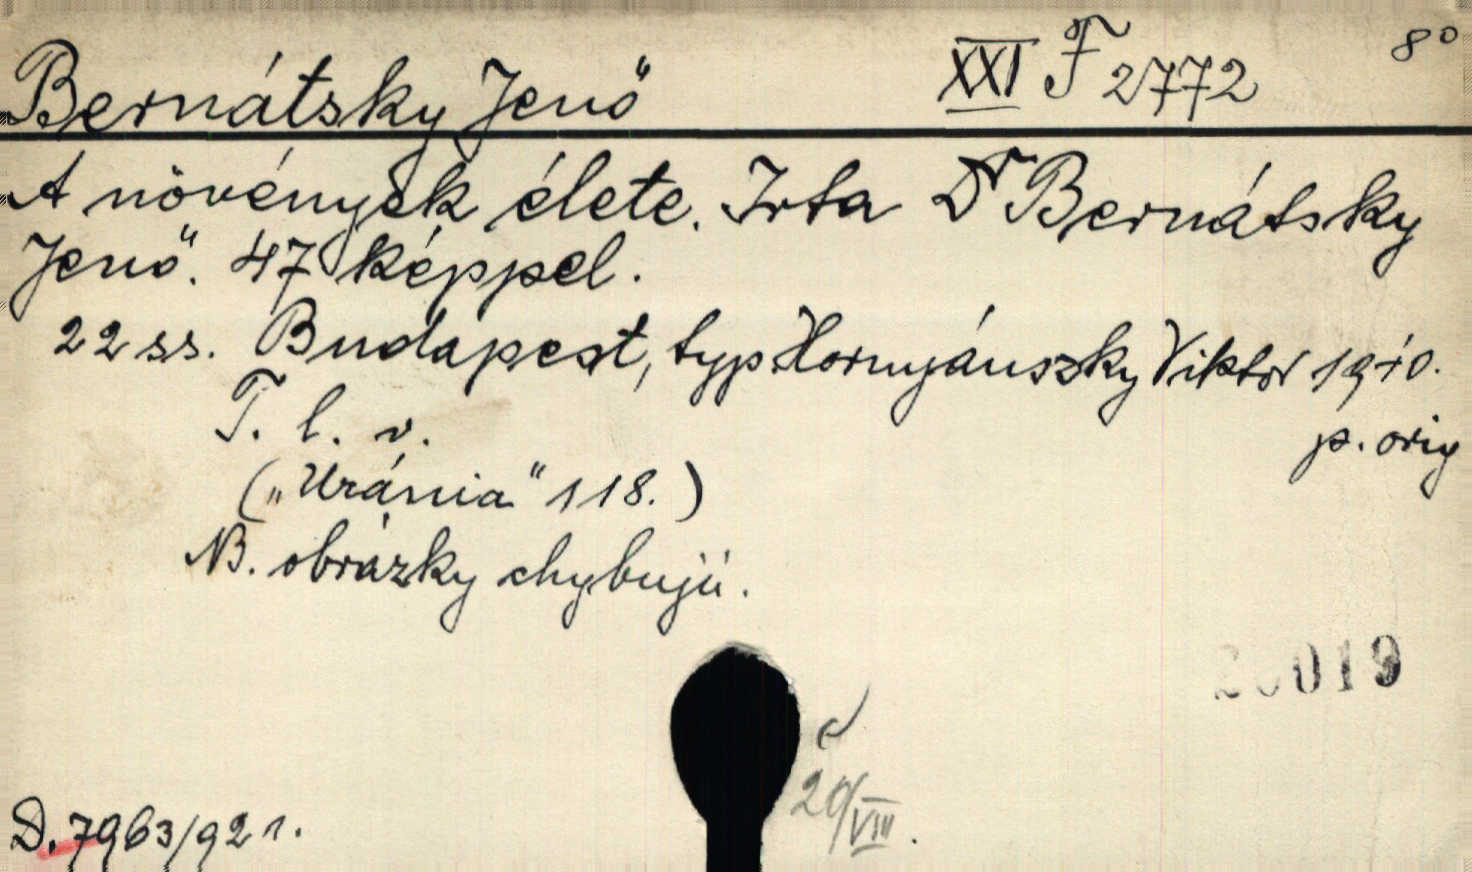 Bernátsky Jenő XXI F 2772 8°
A növények élete. Irta Dr Bernátsky
Jenő. 47 képpel.
22 ss. Budapest, typ Hornyánszky Viktor 1910.
T. l. v. p. orig
(„Uránia" 118.)
NB. obrázky chybujú.
019
29/VIII.
D. 7963/921.